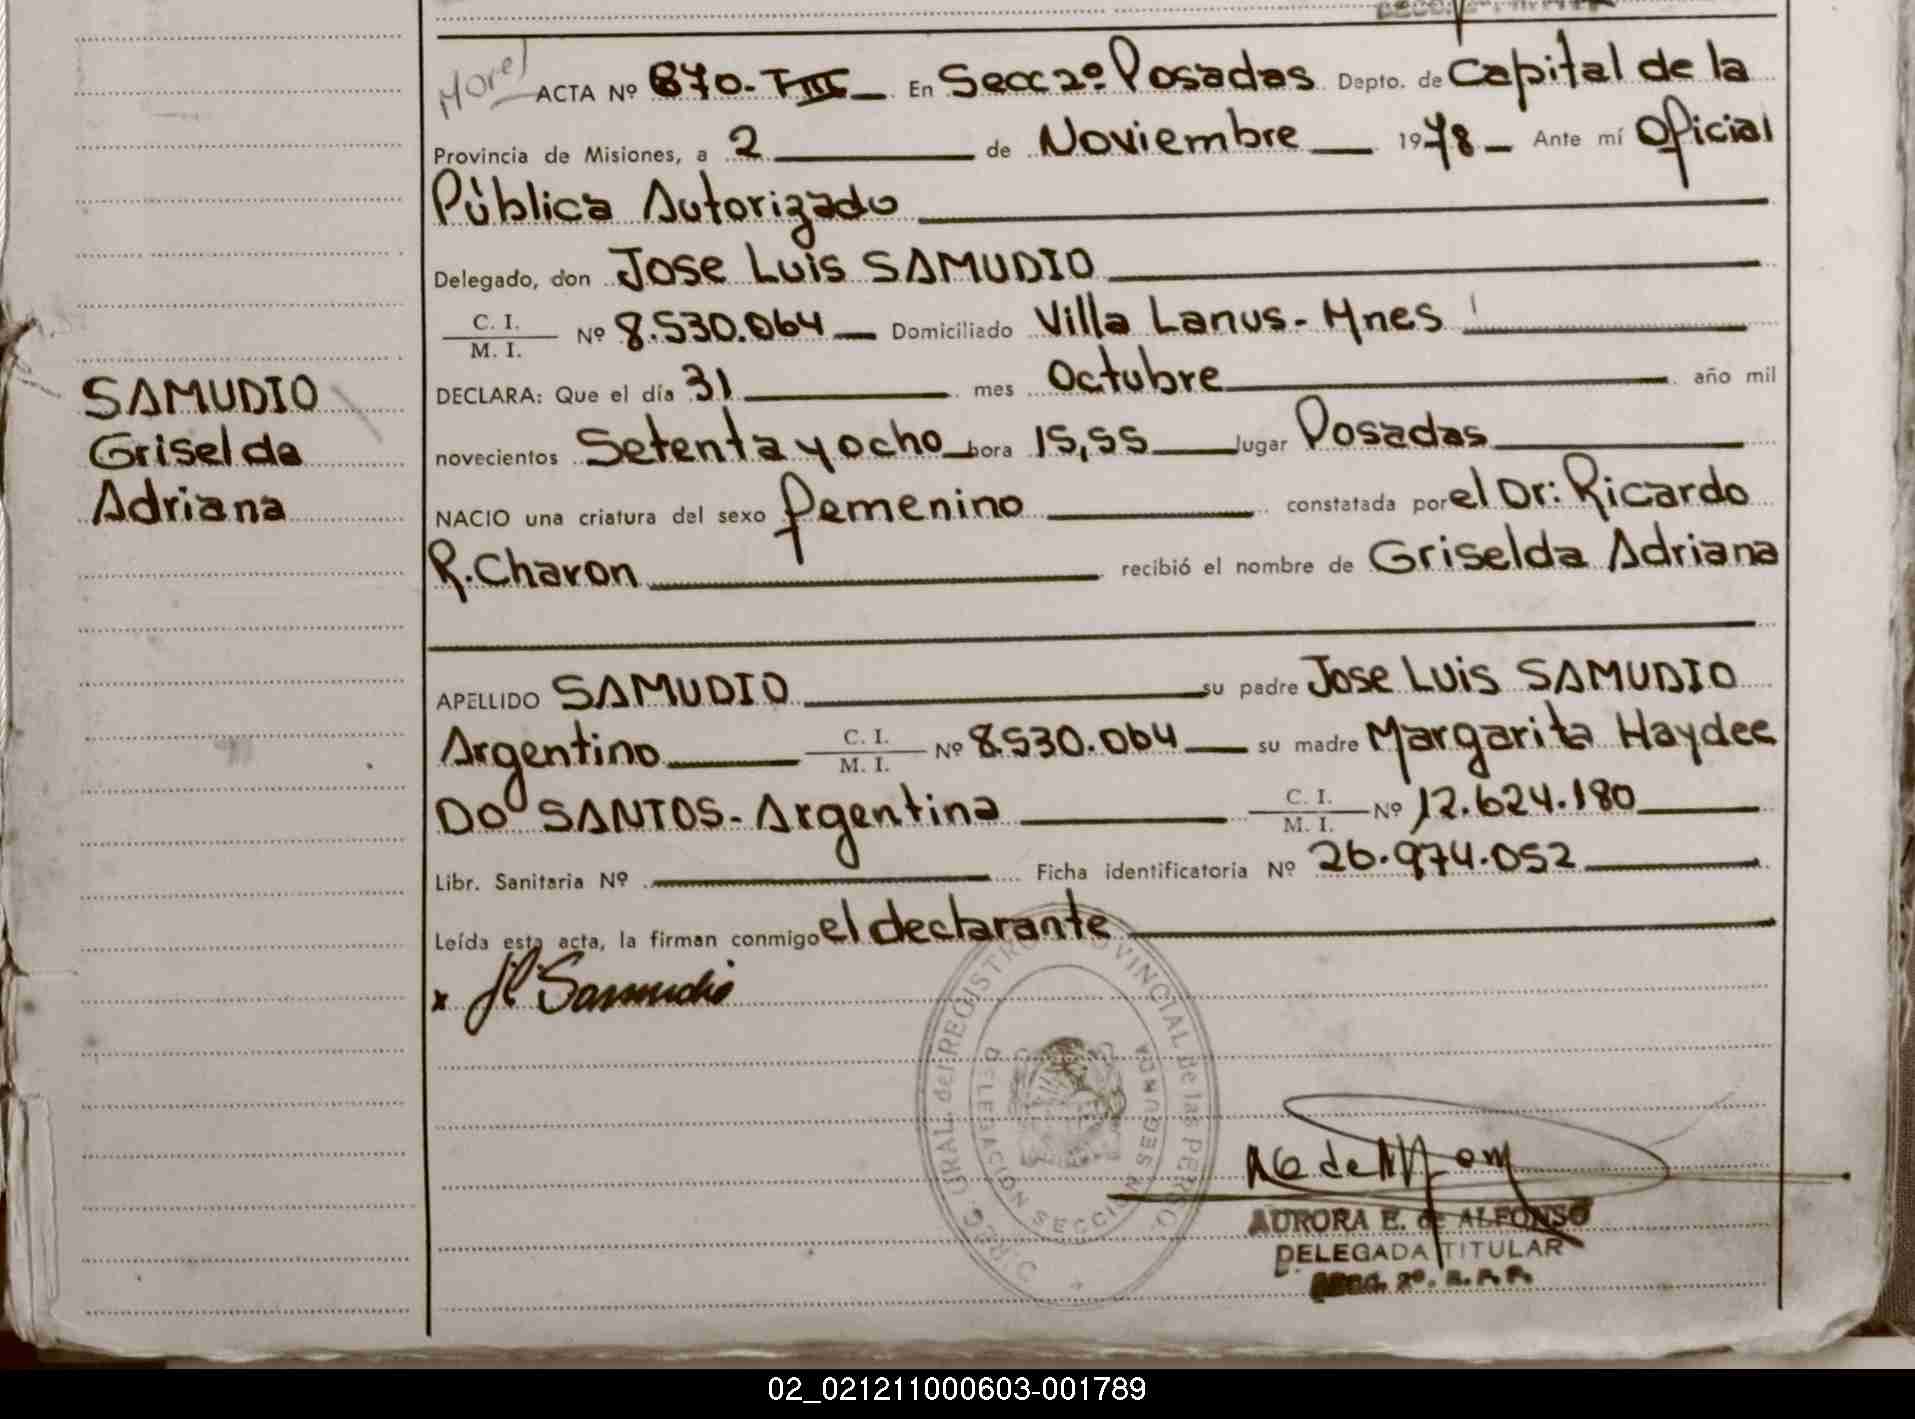 Morel
ACTA Nº 870-TIII En Secc 2º Posadas Depto. de Capital de la
Provincia de Misiones, a 2 de Noviembre 1978 Ante mí Oficial
Pública Autorizado
Delegado, don Jose Luis SAMUDIO
C. I.
M. I. Nº 8.530.064 Domiciliado Villa Lanus - Mnes
DECLARA: Que el día 31 mes Octubre año mil
novecientos Setenta y ocho hora 15,55 lugar Posadas
NACIO una criatura del sexo femenino constatada por el Dr: Ricardo
R. Charon recibió el nombre de Griselda Adriana
SAMUDIO
Griselda
Adriana
APELLIDO SAMUDIO su padre Jose Luis SAMUDIO
Argentino C. I. M. I. Nº 8.530.064 su madre Margarita Haydee
DO SANTOS - Argentina C. I. M. I. Nº 12.624.180
Libr. Sanitaria Nº Ficha identificatoria Nº 26.974.052
Leída esta acta, la firman conmigo el declarante
x JL Samudio
DIREC. GRAL. del REGISTRO PROVINCIAL de las PERSONAS
DELEGACION SECCION SEGUNDA
AURORA E. de ALFONSO
DELEGADA TITULAR
SECC. 2º. R. P. P.
02_021211000603-001789